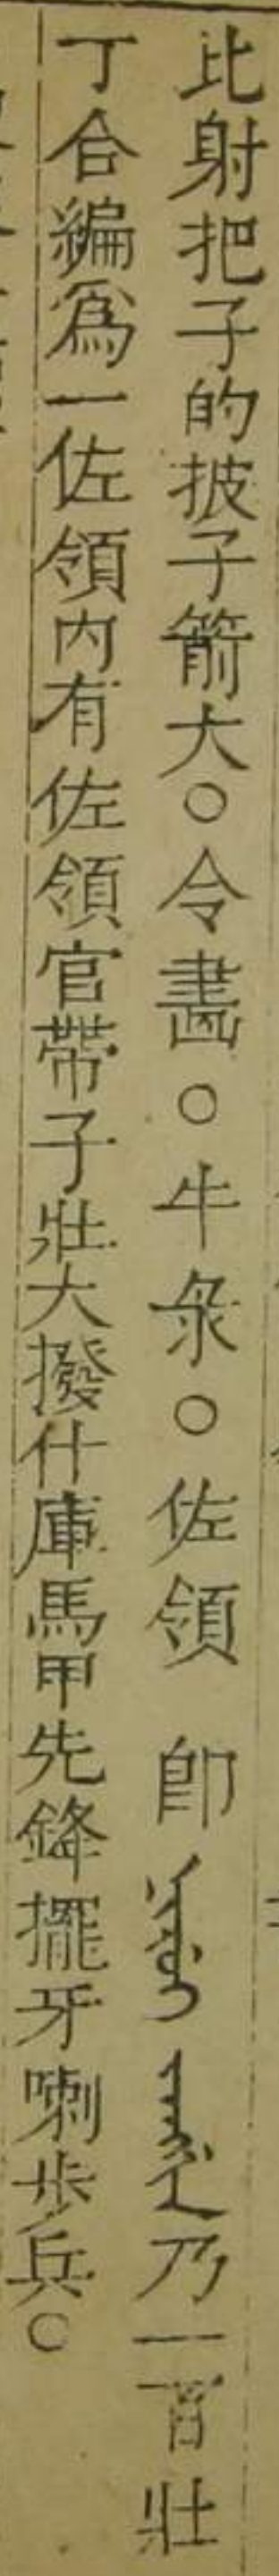 比射把子的披子箭大○令畫○牛彔○佐領 卽 乃一百壯
丁合編爲一佐領內有佐領官帶子壯大撥什庫馬甲先鋒擺牙喇步兵○